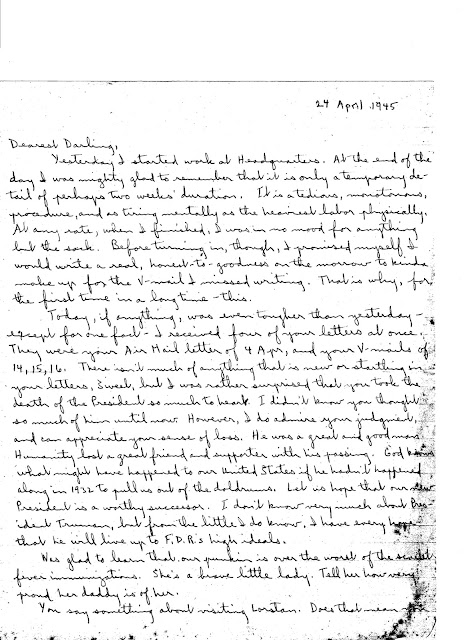 24 April 1945
Dearest Darling,
Yesterday I started work at Headquarters. At the end of the
day, I was mighty glad to remember that it is only a temporary de-
tail of perhaps two weeks' duration. It is a tedious, monotonous,
procedure, and as tiring mentally as the heaviest labor physically.
At any rate, when I finished, I was in no mood for anything
but the sack. Before turning in, though, I promised myself I
would write a real, honest-to-goodness on the morrow to kinda
make up for the V-mail I missed writing. That is why, for
the first time in a long time - this.
Today, if anything, was even tougher than yesterday -
except for one fact - I received four of your letters at once.
They were your Air Mail letter of 4 Apr, and your V-mails of
14, 15, 16. There isn't much of anything that is new or startling in
your letters, Sweet, but I was rather surprised that you took the
death of the President so much to heart. I didn't know you thought
so much of him until now. However, I do admire your judgment,
and can appreciate your sense of loss. He was a great and good man.
Humanity lost a great friend and supporter with his passing. God knows
what might have happened to our United States if he hadn't happened
along in 1932 to pull us out of the doldrums. Let us hope that our new
President is a worthy successor. I don't know very much about Pres-
ident Truman, but from the little I do know, I have every hope
that he will live up to F.D.R's high ideals.
Was glad to learn that our punkin is over the worst of the scarlet
fever immunizations. She's a brave little lady. Tell her how very
proud her daddy is of her.
You say something about visiting Lorstan. Does that mean